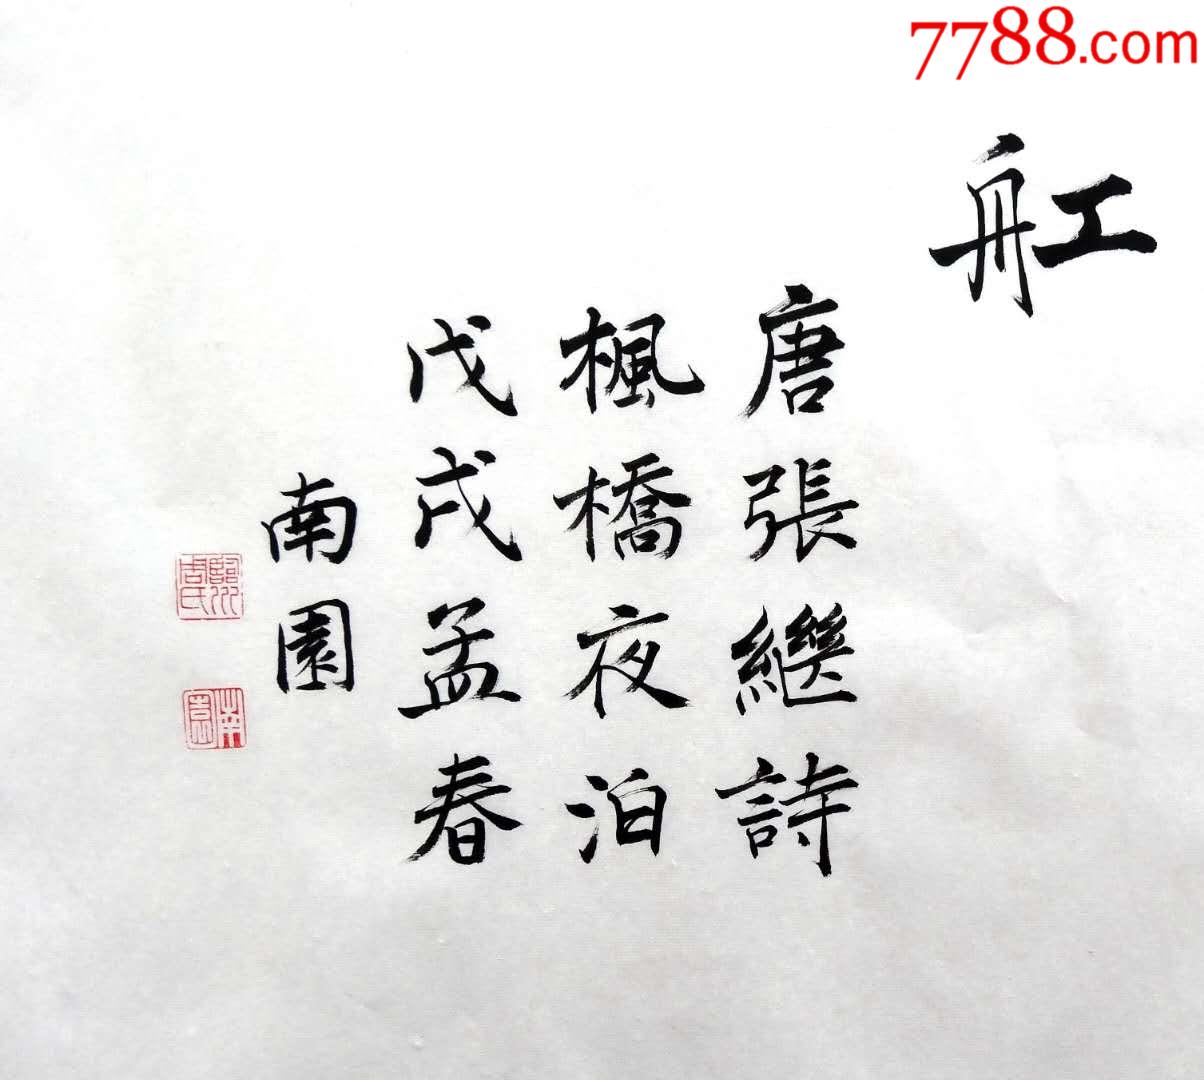 7788.com
舡
唐張繼詩
楓橋夜泊
戊戌孟春
南園